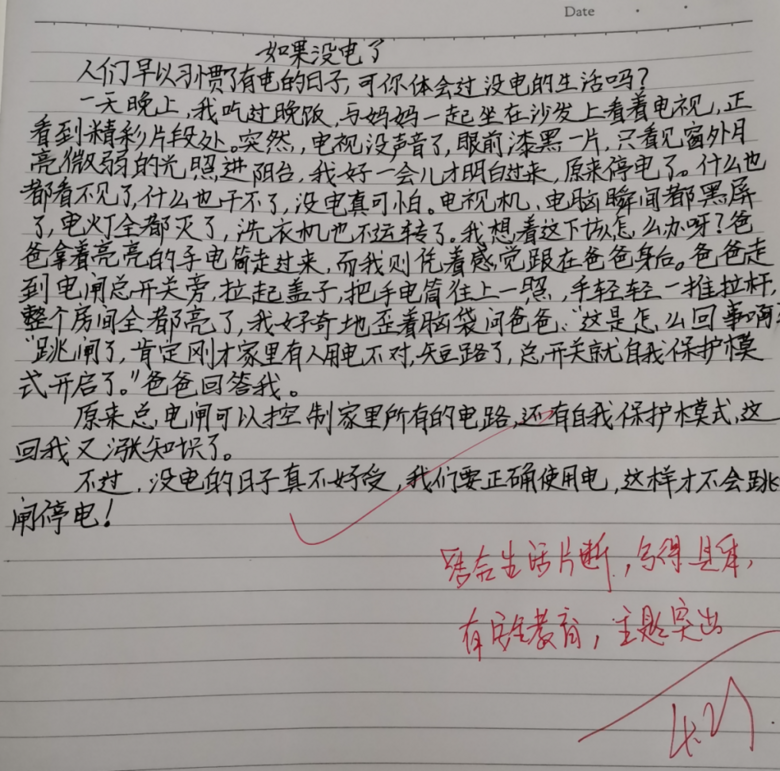 Date
如果没电了
人们早以习惯了有电的日子,可你体会过没电的生活吗?
一天晚上,我吃过晚饭,与妈妈一起坐在沙发上看着电视,正
看到精彩片段处。突然,电视没声音了,眼前漆黑一片,只看见窗外月
亮微弱的光照进阳台,我好一会儿才明白过来,原来停电了。什么也
都看不见了,什么也干不了,没电真可怕。电视机、电脑瞬间都黑屏
了,电灯全都灭了,洗衣机也不运转了。我想着这下该怎么办呀?爸
爸拿着亮亮的手电筒走过来,而我则凭着感觉跟在爸爸身后。爸爸走
到电闸总开关旁,拉起盖子,把手电筒往上一照,手轻轻一推拉杆,
整个房间全都亮了,我好奇地歪着脑袋问爸爸:“这是怎么回事啊?
“跳闸了,肯定刚才家里有人用电不对,短路了,总开关就自我保护模
式开启了。”爸爸回答我。
原来总电闸可以控制家里所有的电路,还有自我保护模式,这
回我又涨知识了。
不过,没电的日子真不好受,我们要正确使用电,这样才不会跳
闸停电!
结合生活片断,写得具体,
有安全教育,主题突出
4.21